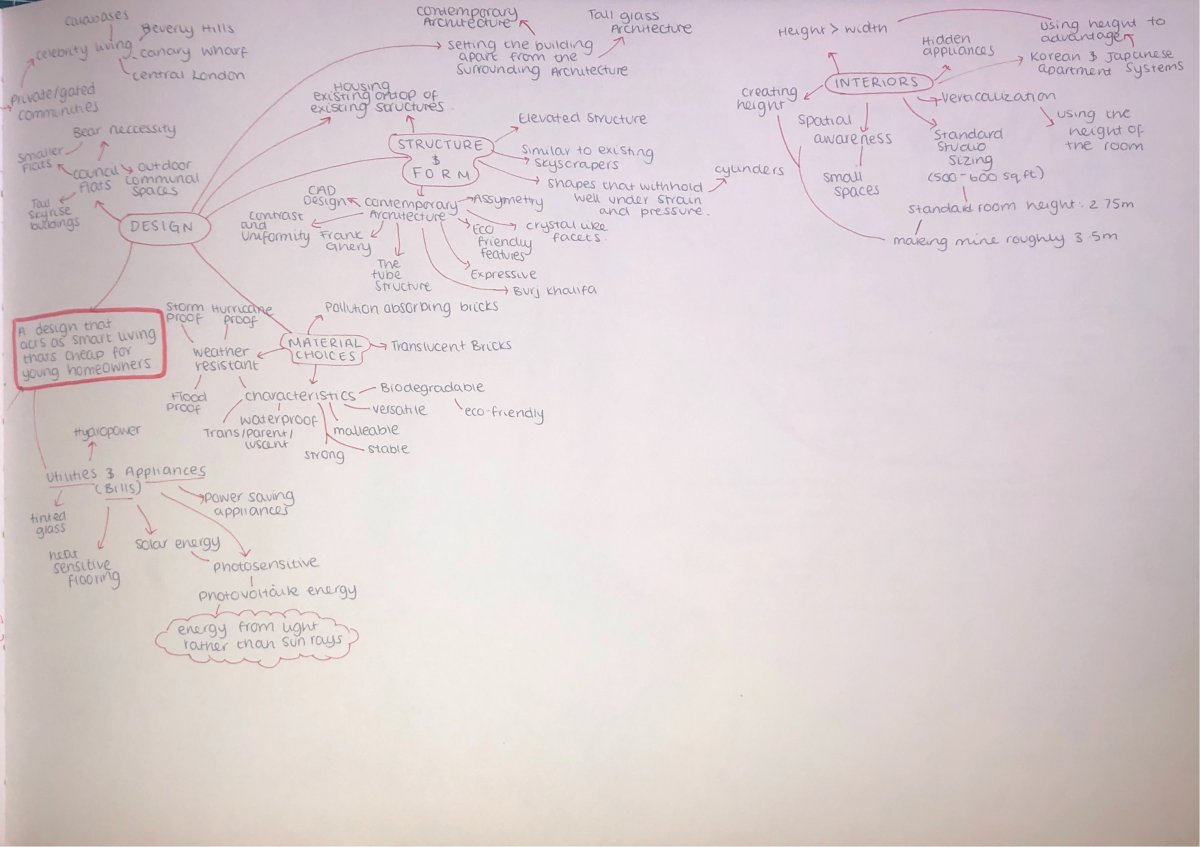 Calabases
Beverly Hills
celebrity living
canary wharf
central London
Private/gated
communities
Bear neccessity
smaller
flats
council
flats
outdoor
communal
spaces
Tall
skyrise
buildings
DESIGN
contemporary
Architecture
Tall glass
Architecture
setting the building
apart from the
surrounding Architecture
Housing
existing ontop of
existing structures
STRUCTURE
&
FORM
Elevated structure
Similar to existing
skyscrapers
shapes that withhold
well under strain
and pressure.
cylinders
CAD
Design
contemporary
Architecture
Assymetry
contrast
and
uniformity
Frank
Ghery
Eco
friendly
features
crystal like
facets.
The
tube
structure
Expressive
Burj Khalifa
Height > width
Hidden
appliances
using height to
advantage
Korean & Japanese
apartment systems
INTERIORS
creating
height
verticalization
using the
height of
the room
spatial
awareness
small
spaces
Standard
Studio
Sizing
(500-600 sq ft)
Standard room height: 2.75m
making mine roughly 3.5m
A design that
acts as smart living
thats cheap for
young homeowners
Storm
proof
Hurricane
proof
weather
resistant
Flood
proof
MATERIAL
CHOICES
Pollution absorbing bricks
Translucent Bricks
characteristics
Biodegradable
eco-friendly
versatile
waterproof
malleable
Trans/parent/
luscent
strong
stable
Hydropower
Utilities & Appliances
(Bills)
tinted
glass
heat
sensitive
flooring
power saving
appliances
solar energy
photosensitive
photovoltaike energy
energy from light
rather than sun rays